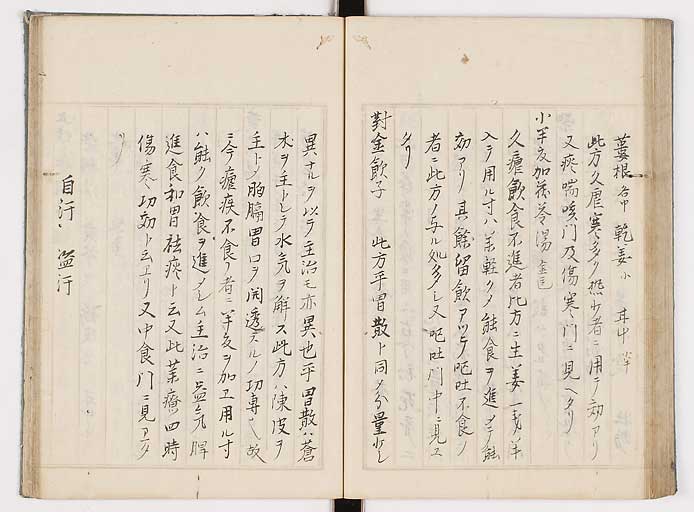 蔞根 各中 乾姜 小 甘中 半
此方久瘧寒多ク熱少者ニ用テ効アリ
又痰喘咳门及傷寒门ニ見ヘタリ
小半夏加茯苓湯 金匱
久瘧飲食不進者此方ニ生姜一戔半
入テ用ル寸ハ 軽クメ能食ヲ進メ 能
効アリ其餘留飲アツテ呕吐不食ノ
者ニ此方ノ与ル処多シ又呕吐门中ニ見エ
タリ
對金飲子 此方平胃散ト同メ分量少シ
異ナルヲ以テ主治モ亦異也平胃散ハ蒼
朮ヲ主トシテ水氣ヲ解ス此方ハ陳皮ヲ
主トメ胸膈胃口ヲ開透スルノ功専也故
ニ今瘧疾不食ノ者ニ半夏ヲ加エ用ル寸
ハ能ク飲食ヲ進メシム主治ニ益元脾
進食和胃祛痰ト云又此薬療四時
傷寒功効ト云エリ又中食门ニ見エタ
リ
自汗 盗汗